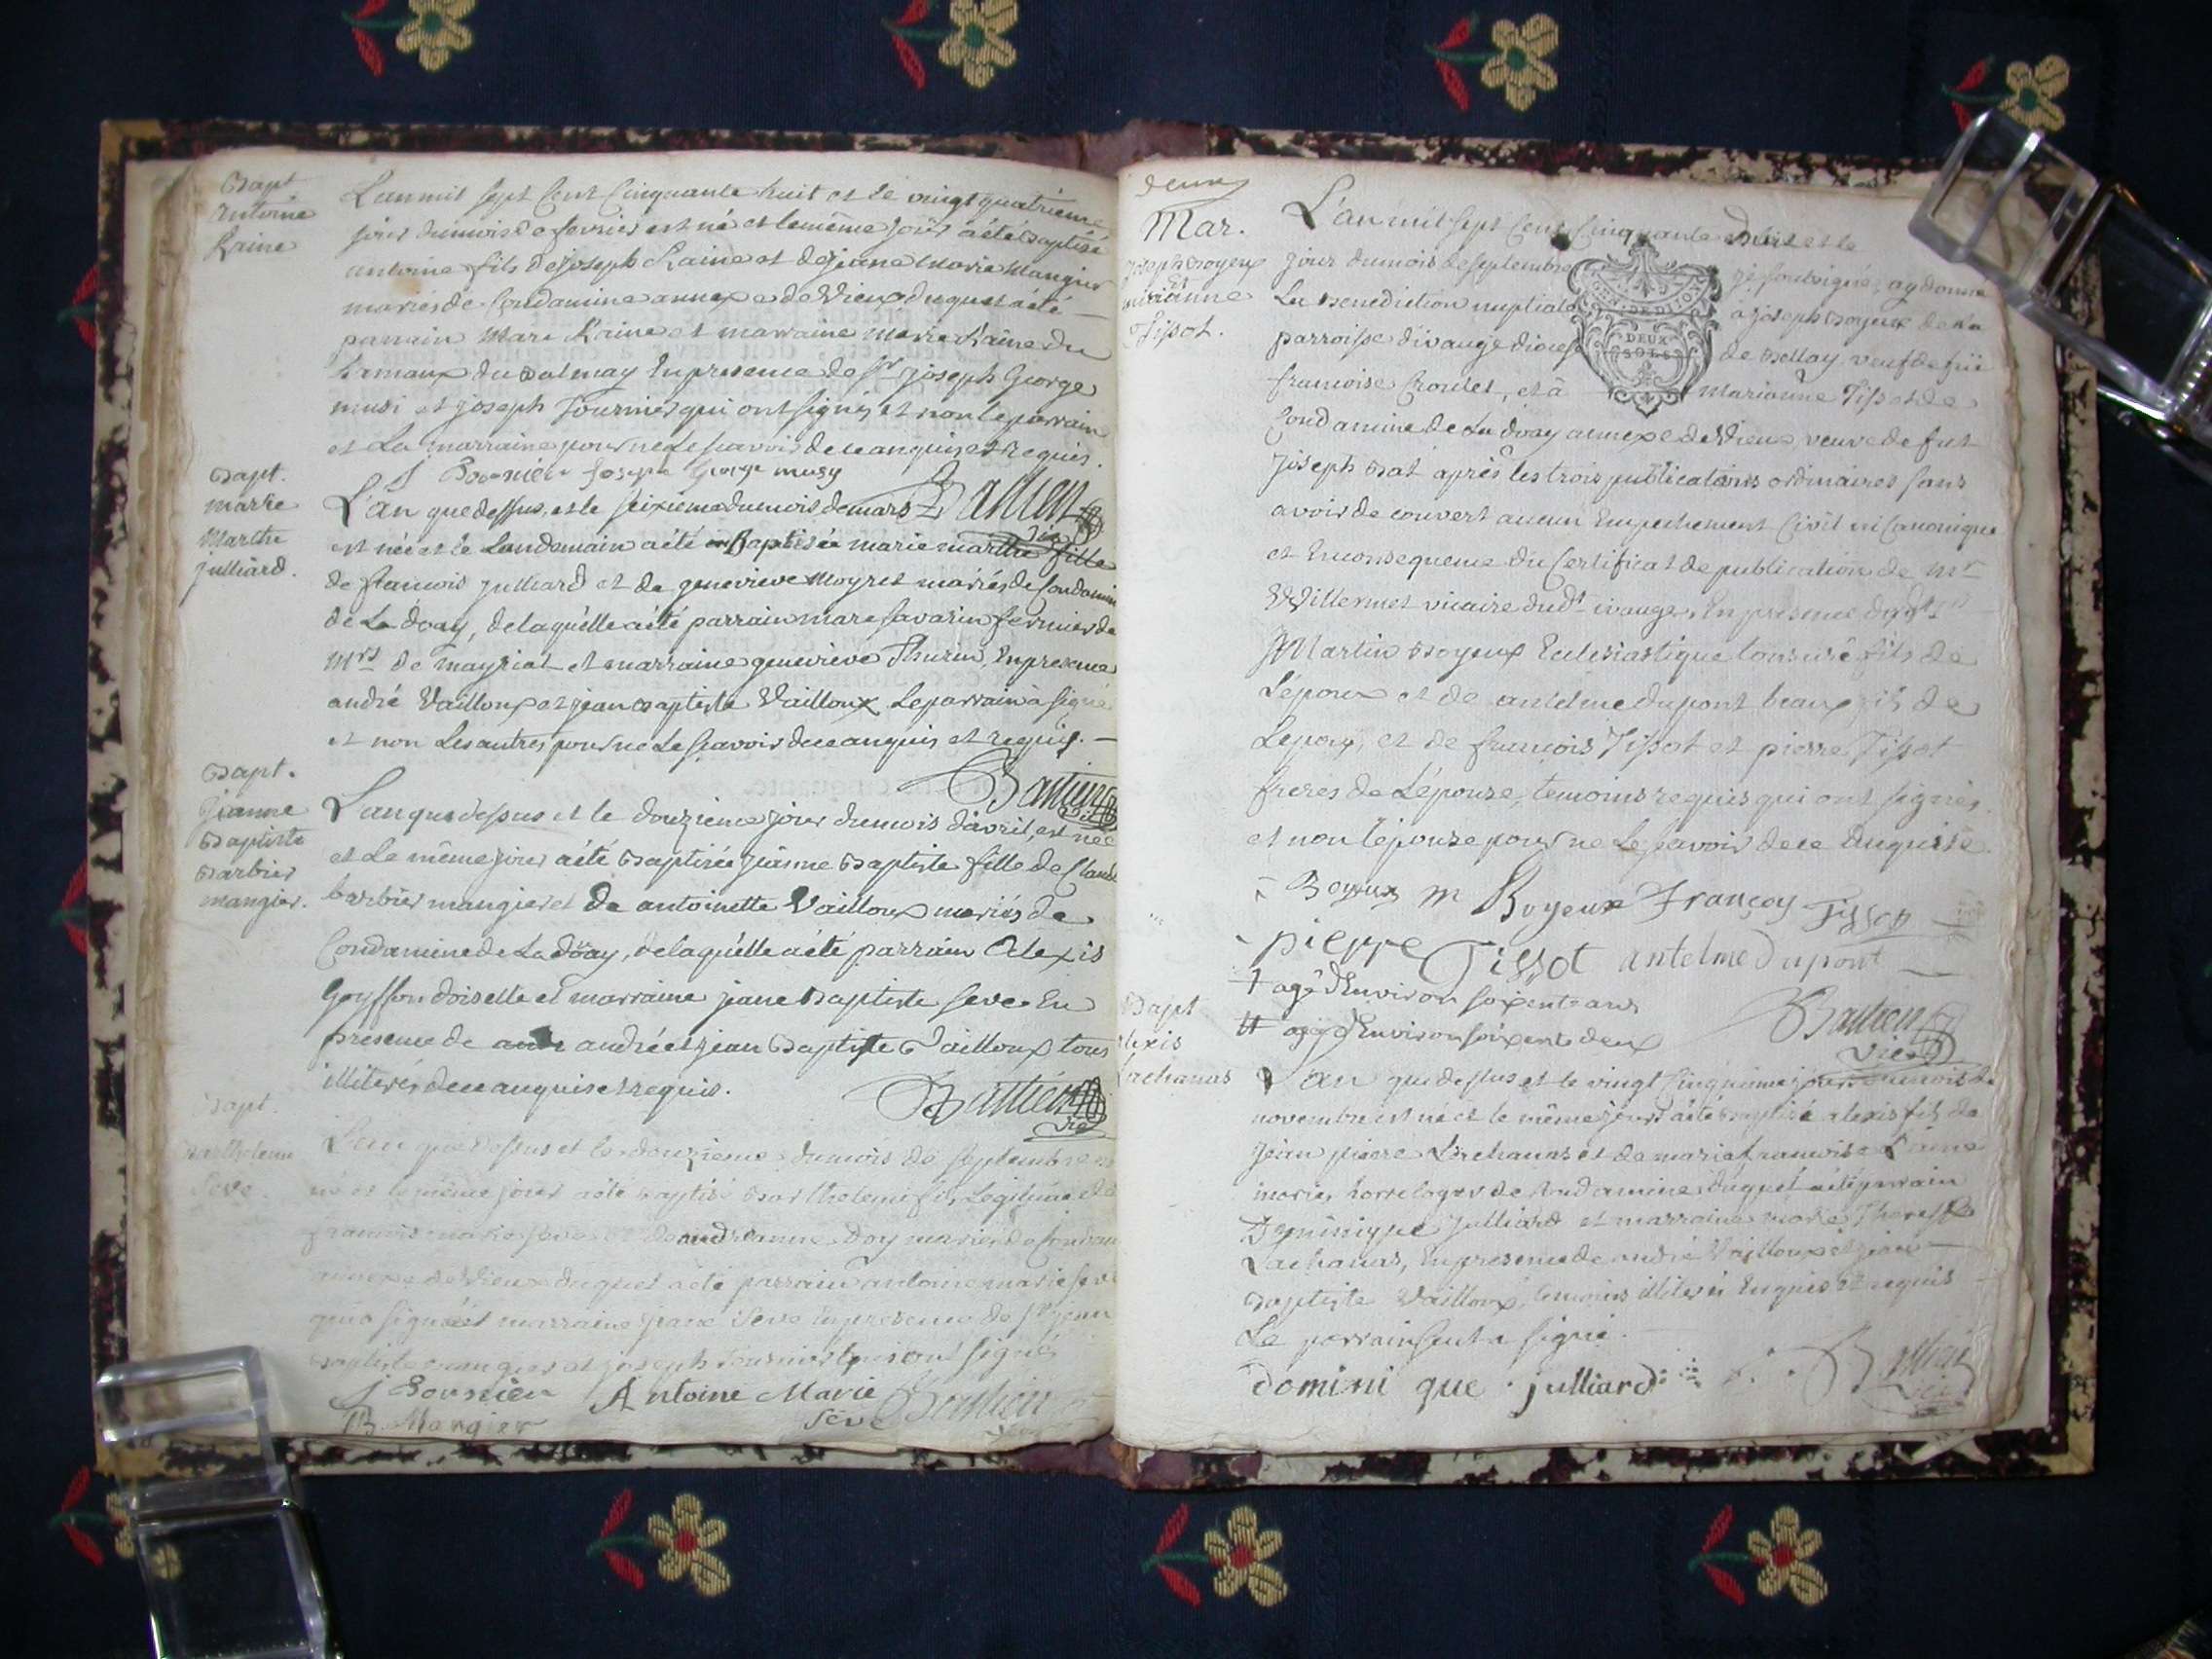 Bapt
antoine
Raine
L'an mil sept Cent Cinquante huit et le vingt quatrieme
jour du mois de fevrier est né et le même jour a été baptisé
antoine fils de joseph Raine et de jeanne Marie Mangier
mariés de Condamine annexe de Vieux duquel a été
parrain Marc Raine et marraine Marie Raine du
hamaux du balmay En presence de Sr joseph George
musi et joseph fournier qui ont signés et non le parrain
et La marraine pour ne Le sçavoir de ce anquis et requis.
J Fournier Joseph George musy
Bapt.
marie
Marthe
julliard.
Battien
vic
L'an que dessus, et le seixieme du mois de mars
est née et le Landemain a été Baptisée marie marthe fille
de francois julliard et de genevieve Moyret mariés de Condamine
de La doay, de laquelle a été parrain marc savarin fermier de
Mrs de mayriat et marraine genevieve Thurin, En presence
andré Vailloux et jean baptiste Vailloux Le parrain à signé
et non Les autres pour ne Le sçavoir de ce anquis et requis.
Battien
Bapt.
Jeanne
Baptiste
Barbier
mangier.
L'an que dessus et le douzieme jour du mois d'avril, est née
et Le même jour a été baptisée jeanne Baptiste fille de Claude
barbier mangier et De antoinette Vailloux mariés de
Condamine de La döay, de laquelle a été parrain Alexis
Goyffon doiselle et marraine jeane Baptiste seve En
presence de andré et jean Baptiste Vailloux tous
illiterés de ce anquis et requis.
Battien
vic
Bapt.
Barthelemi
Seve.
L'an que dessus et le douzieme du mois de septembre
né et le même jour a été baptisé Barthelemi fils Legitime de
francois marie seve et de andreanne Doy mariés de Condamine
annexe de Vieux duquel a été parrain antoine marie seve
qui a signé et marraine jeane Seve En presence de Sr jean
baptiste mangier et joseph fournier qui ont signés
J Fournier Antoine Marie Battien
JB. Mangier Seve
deux
Mar.
joseph Boyeux
et
marianne
Tissot.
GEN. DE DIJON
DEUX
SOLS
L'an mil sept Cent Cinquante huit et le
jour du mois de septembre je soussigné, ay donné
La Benediction nuptiale à joseph Boyeux de La
parroisse d'ivauge diocese de Bellay veuf de
francoise Croulet, et à marianne Tissot de
Condamine de La doay annexe de Vieux, veuve de fut
joseph Bat après les trois publications ordinaires sans
avoir decouvert aucun Empechement Civil ni Canonique
et En consequence du Certificat de publication de Mr
Villermet vicaire dudt ivauge, En presence
Martin Boyeux Eclesiastique tonsuré fils de
L'époux et de antelme dupont beaux fils de
L'epoux, et de francois Tissot et pierre Tissot
freres de L'épouse, temoins requis qui ont signés.
et non l'épouse pour ne Le sçavoir de ce Enquise.
Boyeux M Boyeux Françoy Tissot
pierre Tissot antelme Dupont
† agé d'Environ soixente ans
†† agé d'Environ soixente deux
Battien
vic
Bapt
alexis
Lachanas
L'an que dessus et le vingt Cinquieme jour du mois de
novembre est né et le même jour a été baptisé alexis fils de
jean pierre Lachanas et de marie francoise Raine
mariés horrologer de Condamine, duquel a été parrain
Dominique julliard et marraine marie Theresse
Lachanas, En presence de andré Vailloux et jean
Baptiste Vailloux, temoins illiterés Enquis et requis
Le parrain seul a signé.
domini que julliard Battien
vic